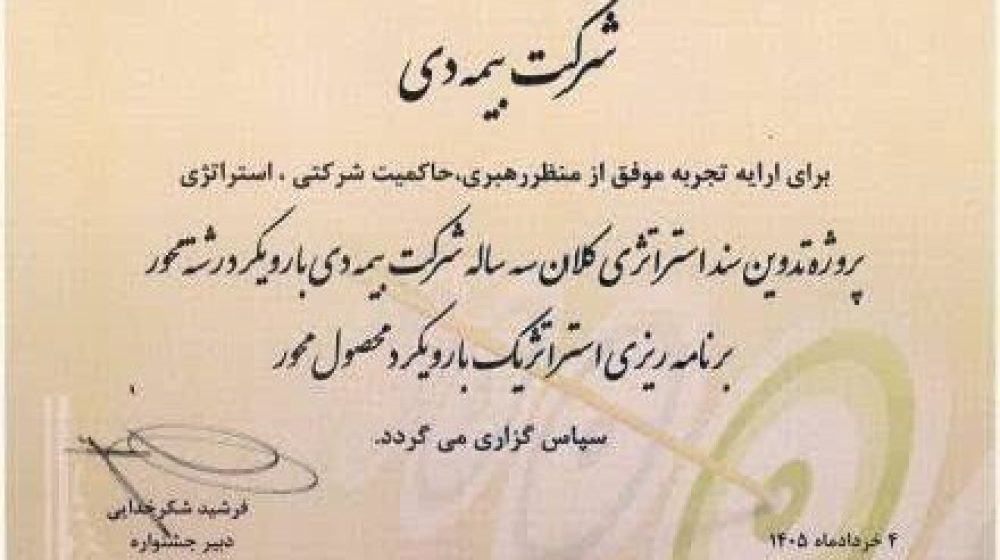 شرکت بیمه دی
برای ارایه تجربه موفق از منظر رهبری، حاکمیت شرکتی ، استراتژی
پروژه تدوین سند استراتژی کلان سه ساله شرکت بیمه دی با رویکرد رشته محور
برنامه ریزی استراتژیک با رویکرد محصول محور
سپاس گزاری می گردد.
فرشید شکرخدایی
دبیر جشنواره
۴ خردادماه ۱۴۰۵